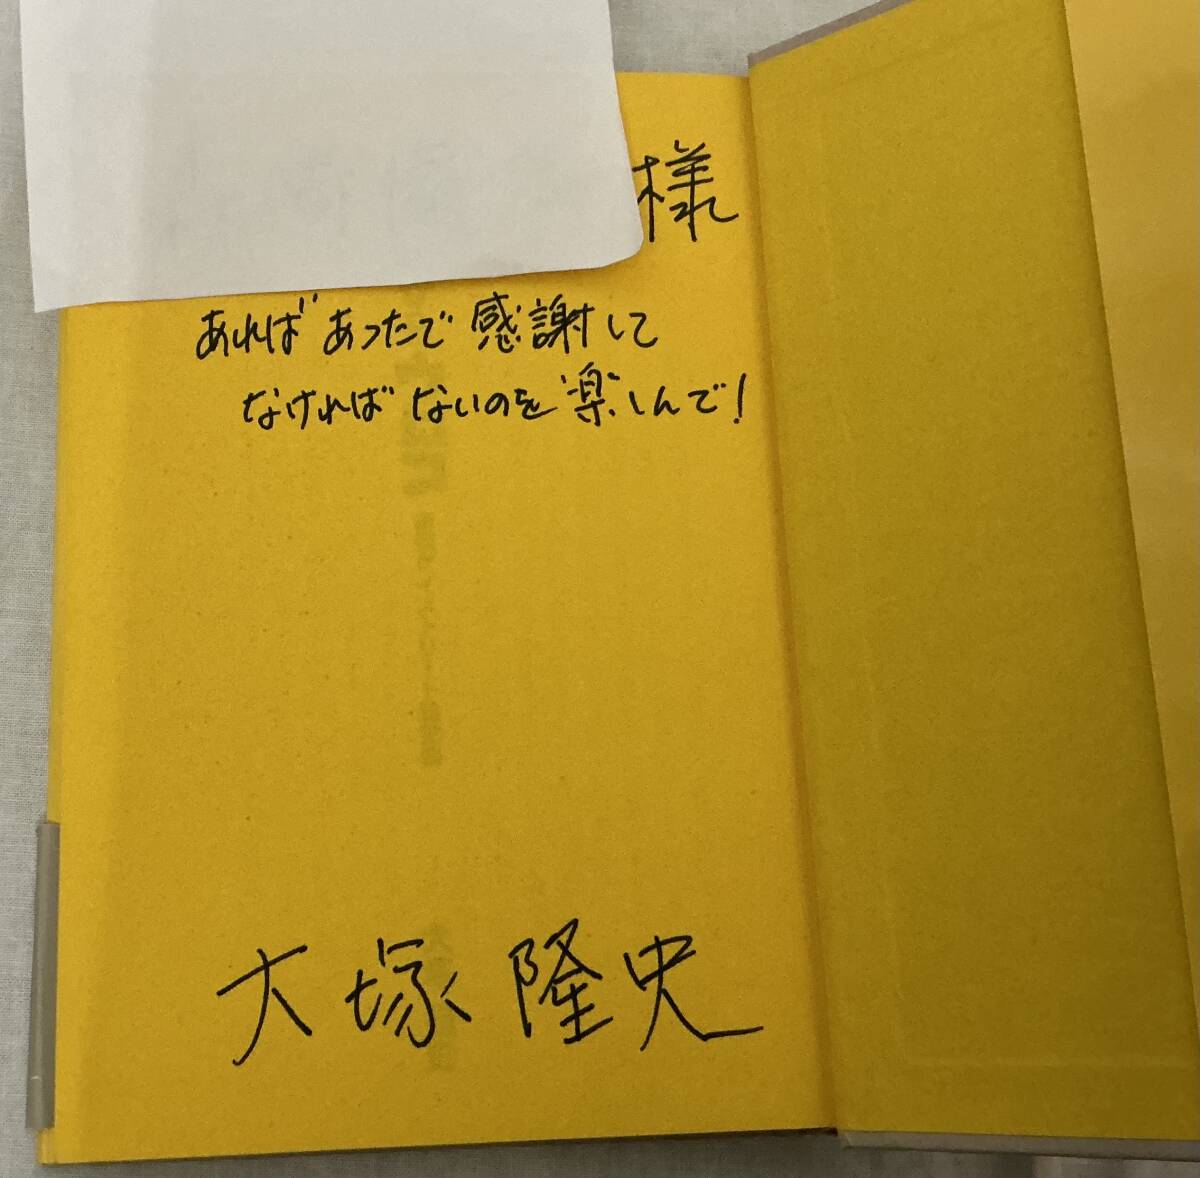 様
あればあったで感謝して
なければないのを楽しんで!
大塚隆史